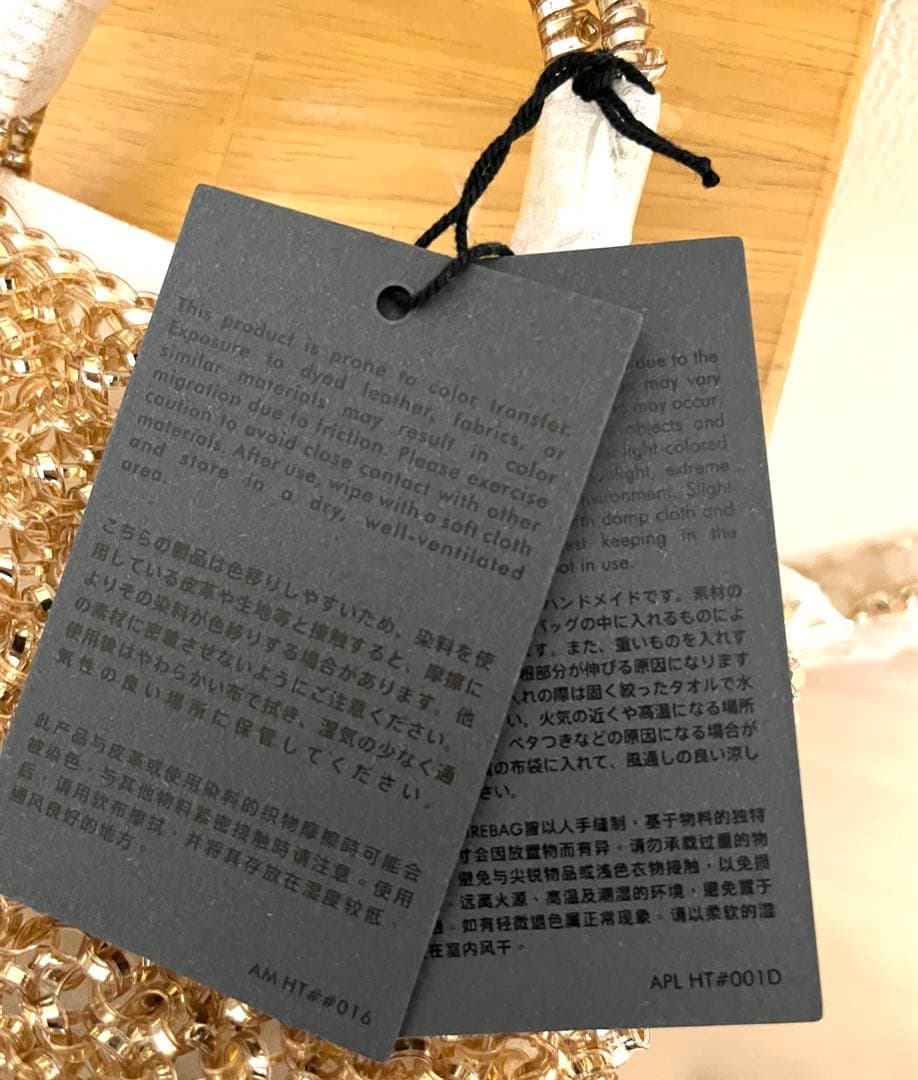 This product is prone to color transfer.
Exposure to dyed leather, fabrics, or
similar materials may result in color
migration due to friction. Please exercise
caution to avoid close contact with other
materials. After use, wipe with a soft cloth
and store in a dry, well-ventilated
area.
こちらの製品は色移りしやすいため、染料を使
用している皮革や生地等と接触すると、摩擦に
よりその染料が色移りする場合があります。他
の素材に密着させないようにご注意ください。
使用後はやわらかい布で拭き、湿気の少なく通
気性の良い場所に保管してください。
此产品与皮革或使用染料的织物摩擦時可能会
被染色，与其他物料紧密接触時请注意。使用
后，请用软布擦拭，并将其存放在湿度较低、
通风良好的地方。
AM HT##016
due to the
may vary
may occur,
objects and
light-colored
light, extreme
environment. Slight
damp cloth and
keeping in the
not in use.
ハンドメイドです。素材の
バッグの中に入れるものによ
す。また、重いものを入れす
根部分が伸びる原因になります
入れの際は固く絞ったタオルで水
い。火気の近くや高温になる場所
ベタつきなどの原因になる場合が
の布袋に入れて、風通しの良い涼し
さい。
REBAG皆以人手缝制，基于物料的独特
寸会因放置物而有异。请勿承载过重的物
避免与尖锐物品或浅色衣物接触，以免损
远离火源、高温及潮湿的环境，避免置于
。如有轻微退色属正常现象。请以柔软的湿
在室内风干。
APL HT#001D